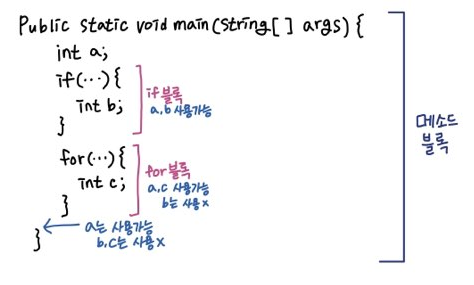 Public static void main(String[] args) {
int a;
if(...){
int b;
}
if 블록
a, b 사용가능
for(...){
int c;
}
for 블록
a, c 사용가능
b는 사용 x
a는 사용가능
b, c는 사용 x
}
메소드
블록